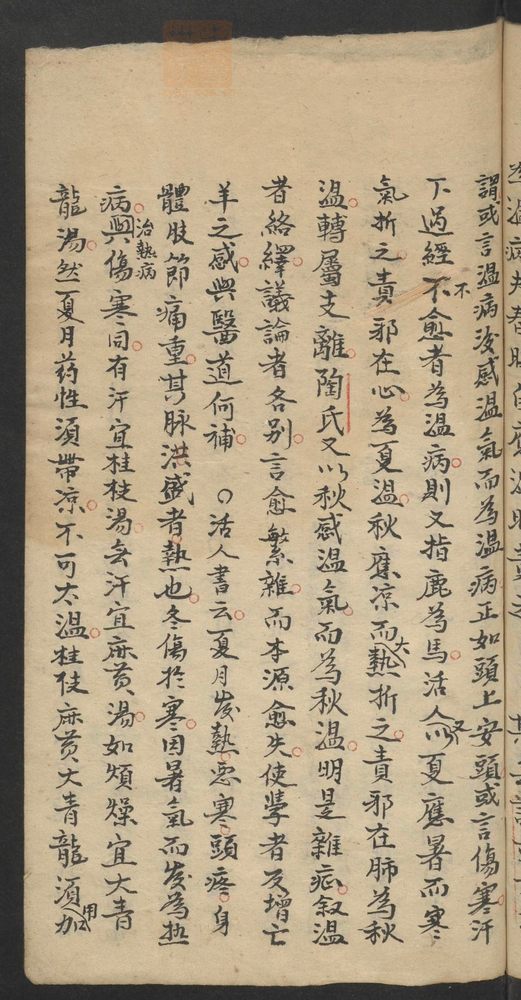 謂或言温病復感温氣而為温病正如頭上安頭或言傷寒汗
下過經不愈者為温病則又指鹿為馬活人又以夏應暑而寒
氣折之責邪在心為夏温秋應涼而大熱折之責邪在肺為秋
温轉屬支離陶氏又以秋感温氣而為秋温明是雜症叙温
者絡繹議論者各别言愈繁雜而本源愈失使學者反增亡
羊之感與醫道何補○活人書云夏月发熱惡寒頭疼身
體肢節痛重其脉洪盛者熱也冬傷於寒因暑氣而发為热
病治熱病與傷寒同有汗宜桂枝湯無汗宜麻黄湯如煩燥宜大青
龍湯然夏月药性須帶凉不可太温桂枝麻黄大青龍須用加